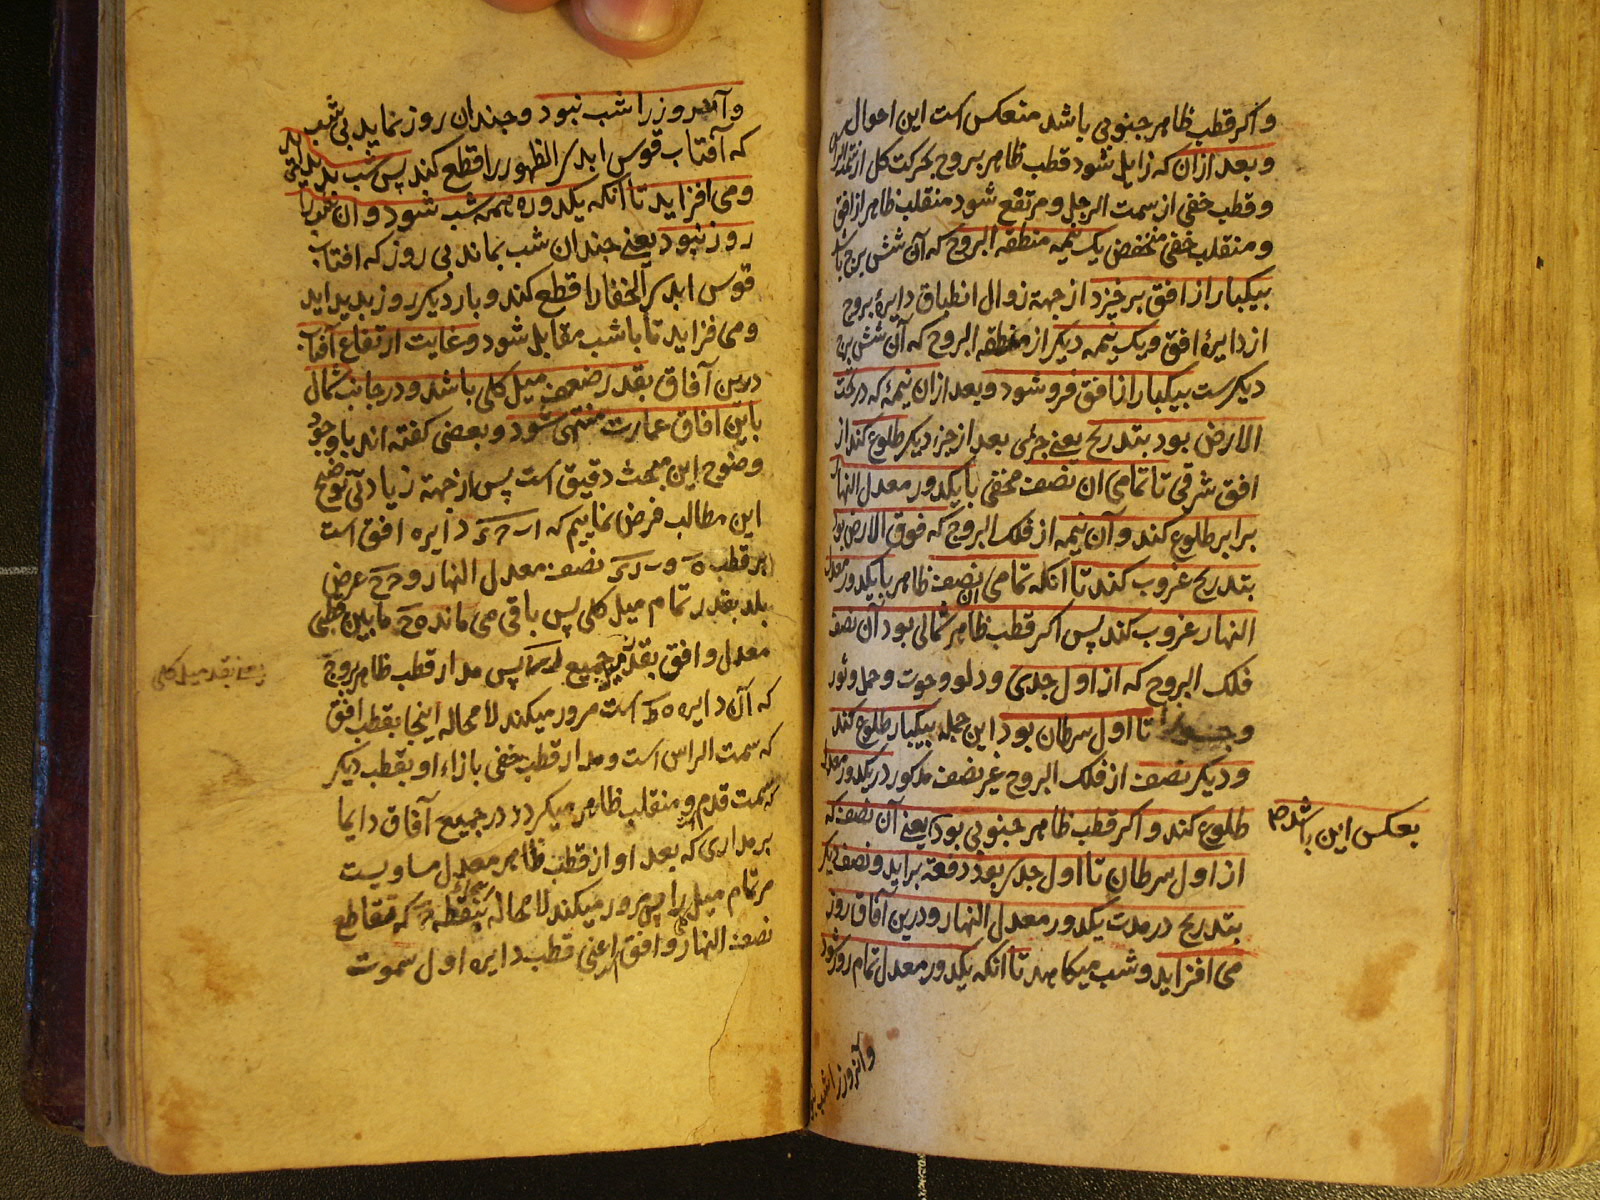 واکر قطب ظاهر جنوبی باشد منعکس است این احوال
و بعد ازان که زایل شود قطب ظاهر بروج بحرکت کل از سمت الراس
و قطب خفی از سمت الرجل و مرتفع شود منقلب ظاهر از افق
و منقلب خفی منخفض یک نیمه منطقه البروج که آن شش برج باشد
بیکبار از افق برخیزد از جهة زوال انطباق دایرهٔ بروج
از دایرهٔ افق و یک نیمه دیکر از منطقه البروج که آن شش برج
دیکرست بیکبار از افق فرو شود و بعد ازان نیمهٔ که در تحت
الارض بود بتدریج یعنے جزئی بعد از جزء دیکر طلوع کند از
افق شرقی تا تمامی ان نصف مخفی با یکدور معدل النهار
برابر طلوع کند و آن نیمه از فلک البروج که فوق الارض بود
بتدریج غروب کند تا انکه تمامی ان نصف ظاهر با یکدور معدل
النهار غروب کند پس اکر قطب ظاهر شمالی بود آن نصف
فلک البروج که از اول جدی و دلو و حوت و حمل و ثور
و جوزا تا اول سرطان بود این جمله بیکبار طلوع کند
و دیکر نصف از فلک البروج غیر نصف مذکور در یکدور معدل
طلوع کند و اکر قطب ظاهر جنوبی بود یعنے آن نصف که
بعکس این باشد
از اول سرطان تا اول جدی بود دفعة براید و نصف دیکر
بتدریج در مدت یکدور معدل النهار و درین آفاق روز
می افزاید و شب میکاهد تا انکه یکدور معدل تمام روز شود
وآنروز را شب نبود
وآنروز را شب نبود و جندان روز نماید بی شب
که آفتاب قوس ابدی الظهور را قطع کند پس شب پدید اید
ومی افزاید تا انکه یکدوره همه شب شود و ان شب را
روز نبود یعنے جندان شب بماند بی روز که افتاب
قوس ابدی الخفا را قطع کند و بار دیکر روز بدید اید
ومی فزاید تا با شب مقابل شود و غایت ارتفاع آفتاب
درین آفاق بقدر ضعف میل کلی باشد و در جانب شمال
باین افاق عمارت منتهی شود و بعضی کفته اند با وجود
وضوح این مبحث دقیق است پس از جهة زیادتی توضیح
این مطالب فرض نماییم که دایره افق است
بر قطب نصف معدل النهار و عرض
بلد بقدر تمام میل کلی پس باقی می ماند ما بین قطبی
معدل و افق بقدر جمیع پس مدار قطب ظاهر بروج
یعنے بقدر میل کلی
که آن دایره است مرور میکند لا محاله اینجا بقطب افق
که سمت الراس است و مدار قطب خفی بازاء او بقطب دیکر
که سمت قدم و منقلب ظاهر میکردد در جمیع آفاق دایما
بر مداری که بعد او از قطب ظاهر معدل مساویست
مر تمام میل را پس مرور میکند لا محاله بنقطه که تقاطع
نصف النهار و افق اعنی قطب دایره اول سموت